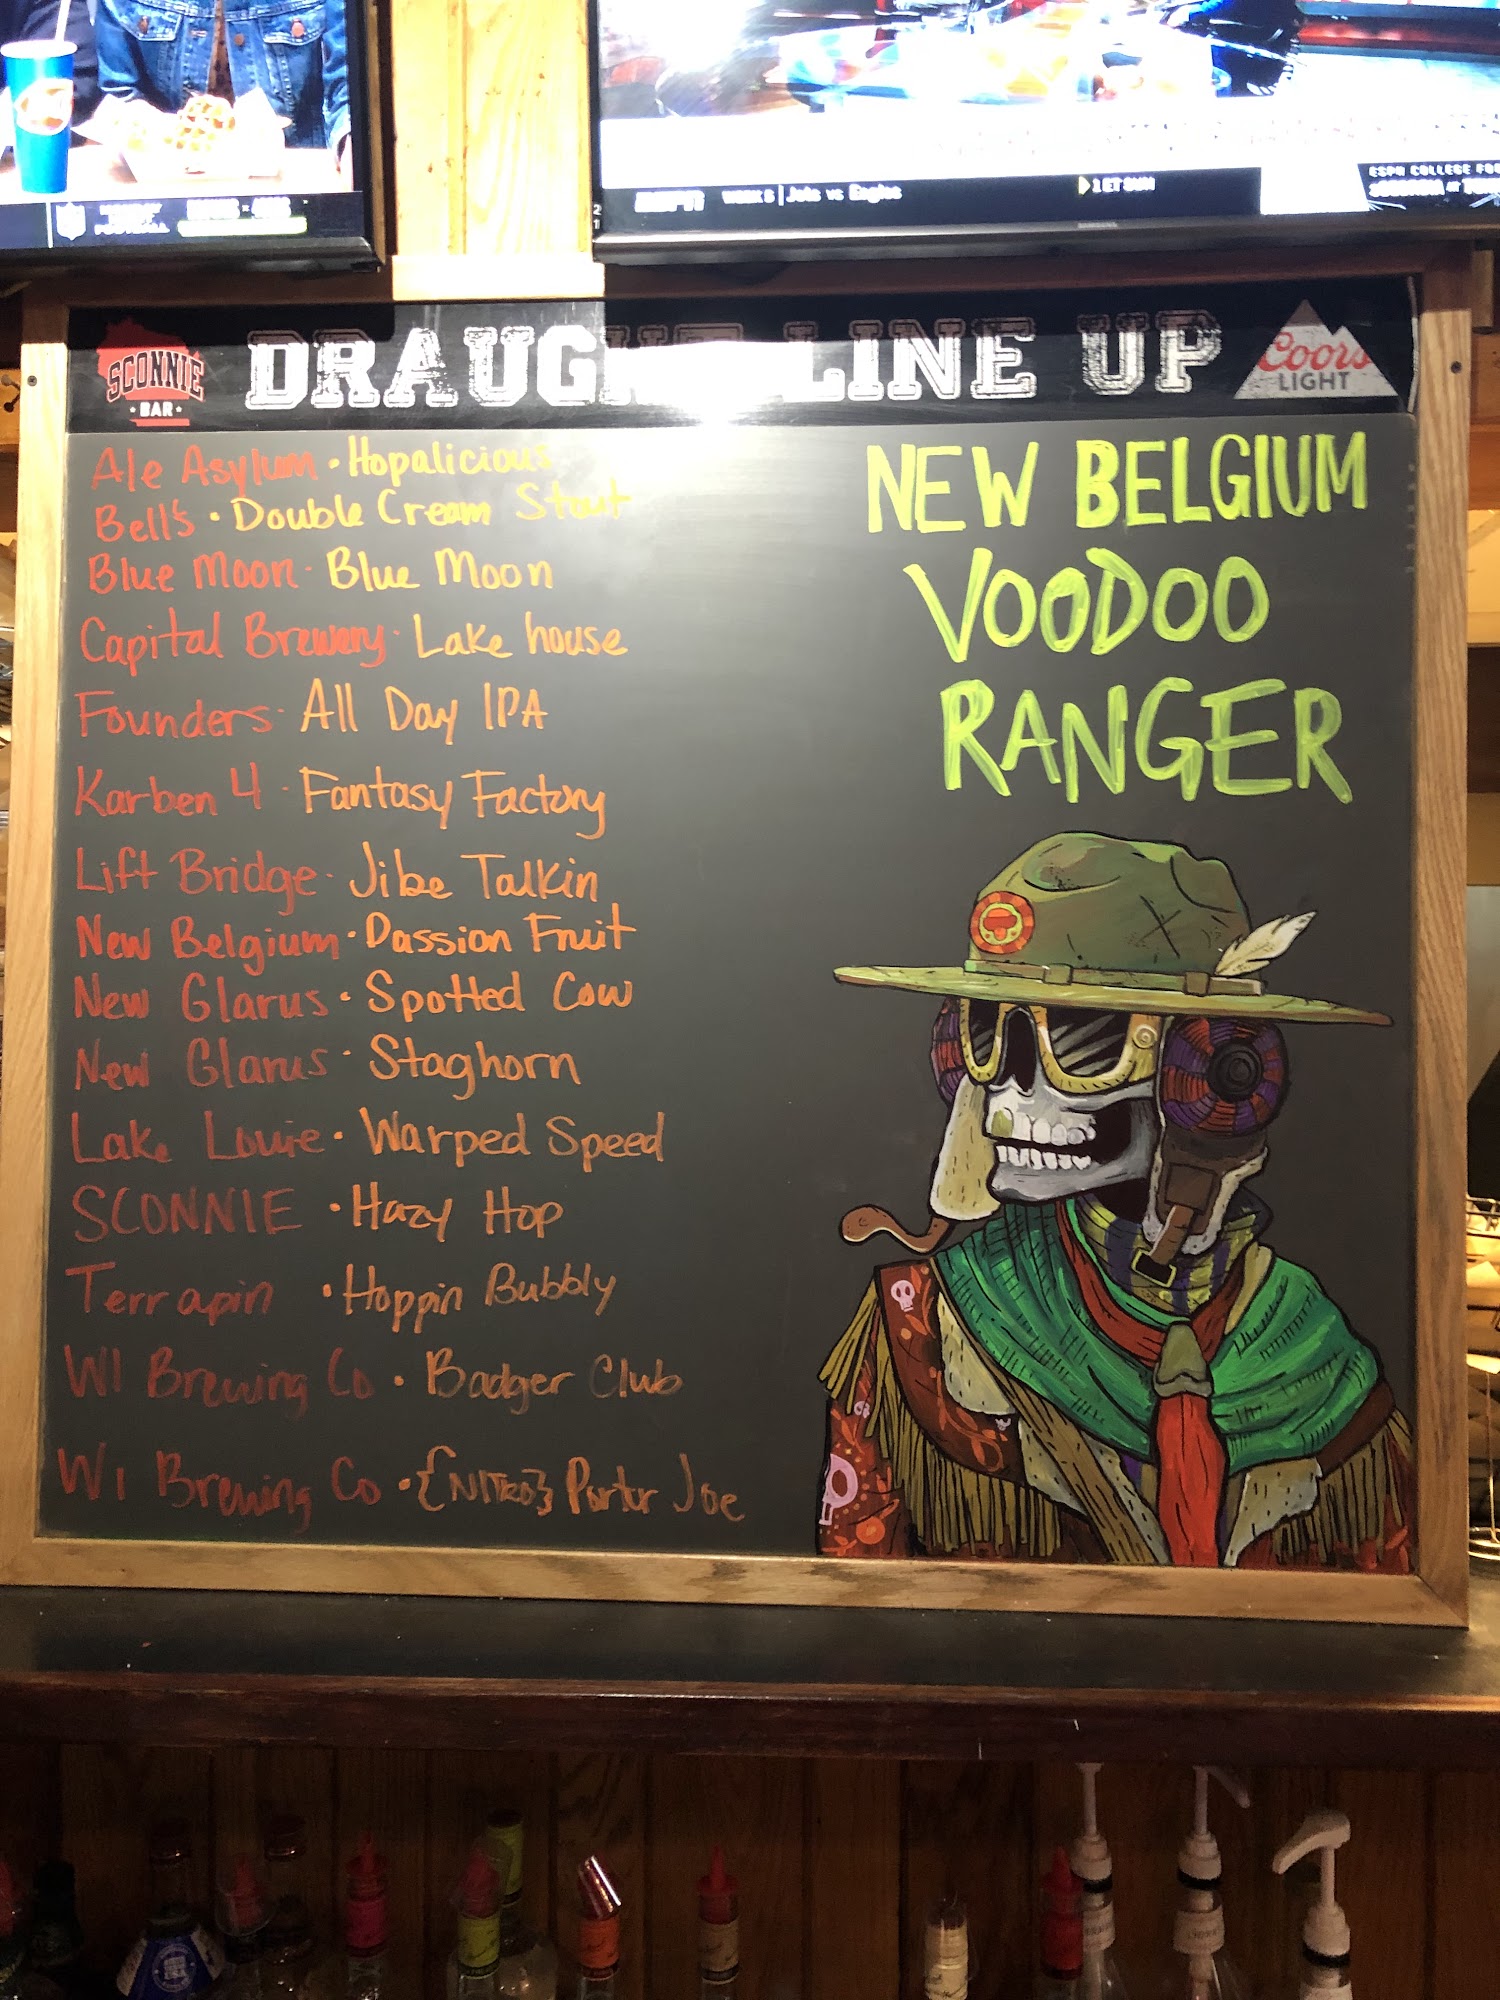 WEEK 5 | Jets vs Eagles
1 ET SUN
ESPN COLLEGE
SCONNIE
BAR
DRAUGHT LINE UP
Coors
LIGHT
Ale Asylum · Hopalicious
Bell's · Double Cream Stout
Blue Moon · Blue Moon
Capital Brewery · Lake house
Founders · All Day IPA
Karben 4 · Fantasy Factory
Lift Bridge · Jibe Talkin
New Belgium · Passion Fruit
New Glarus · Spotted Cow
New Glarus · Staghorn
Lake Louie · Warped Speed
SCONNIE · Hazy Hop
Terrapin · Hoppin Bubbly
WI Brewing Co · Badger Club
WI Brewing Co · {NITRO} Porter Joe
NEW BELGIUM
VOODOO
RANGER